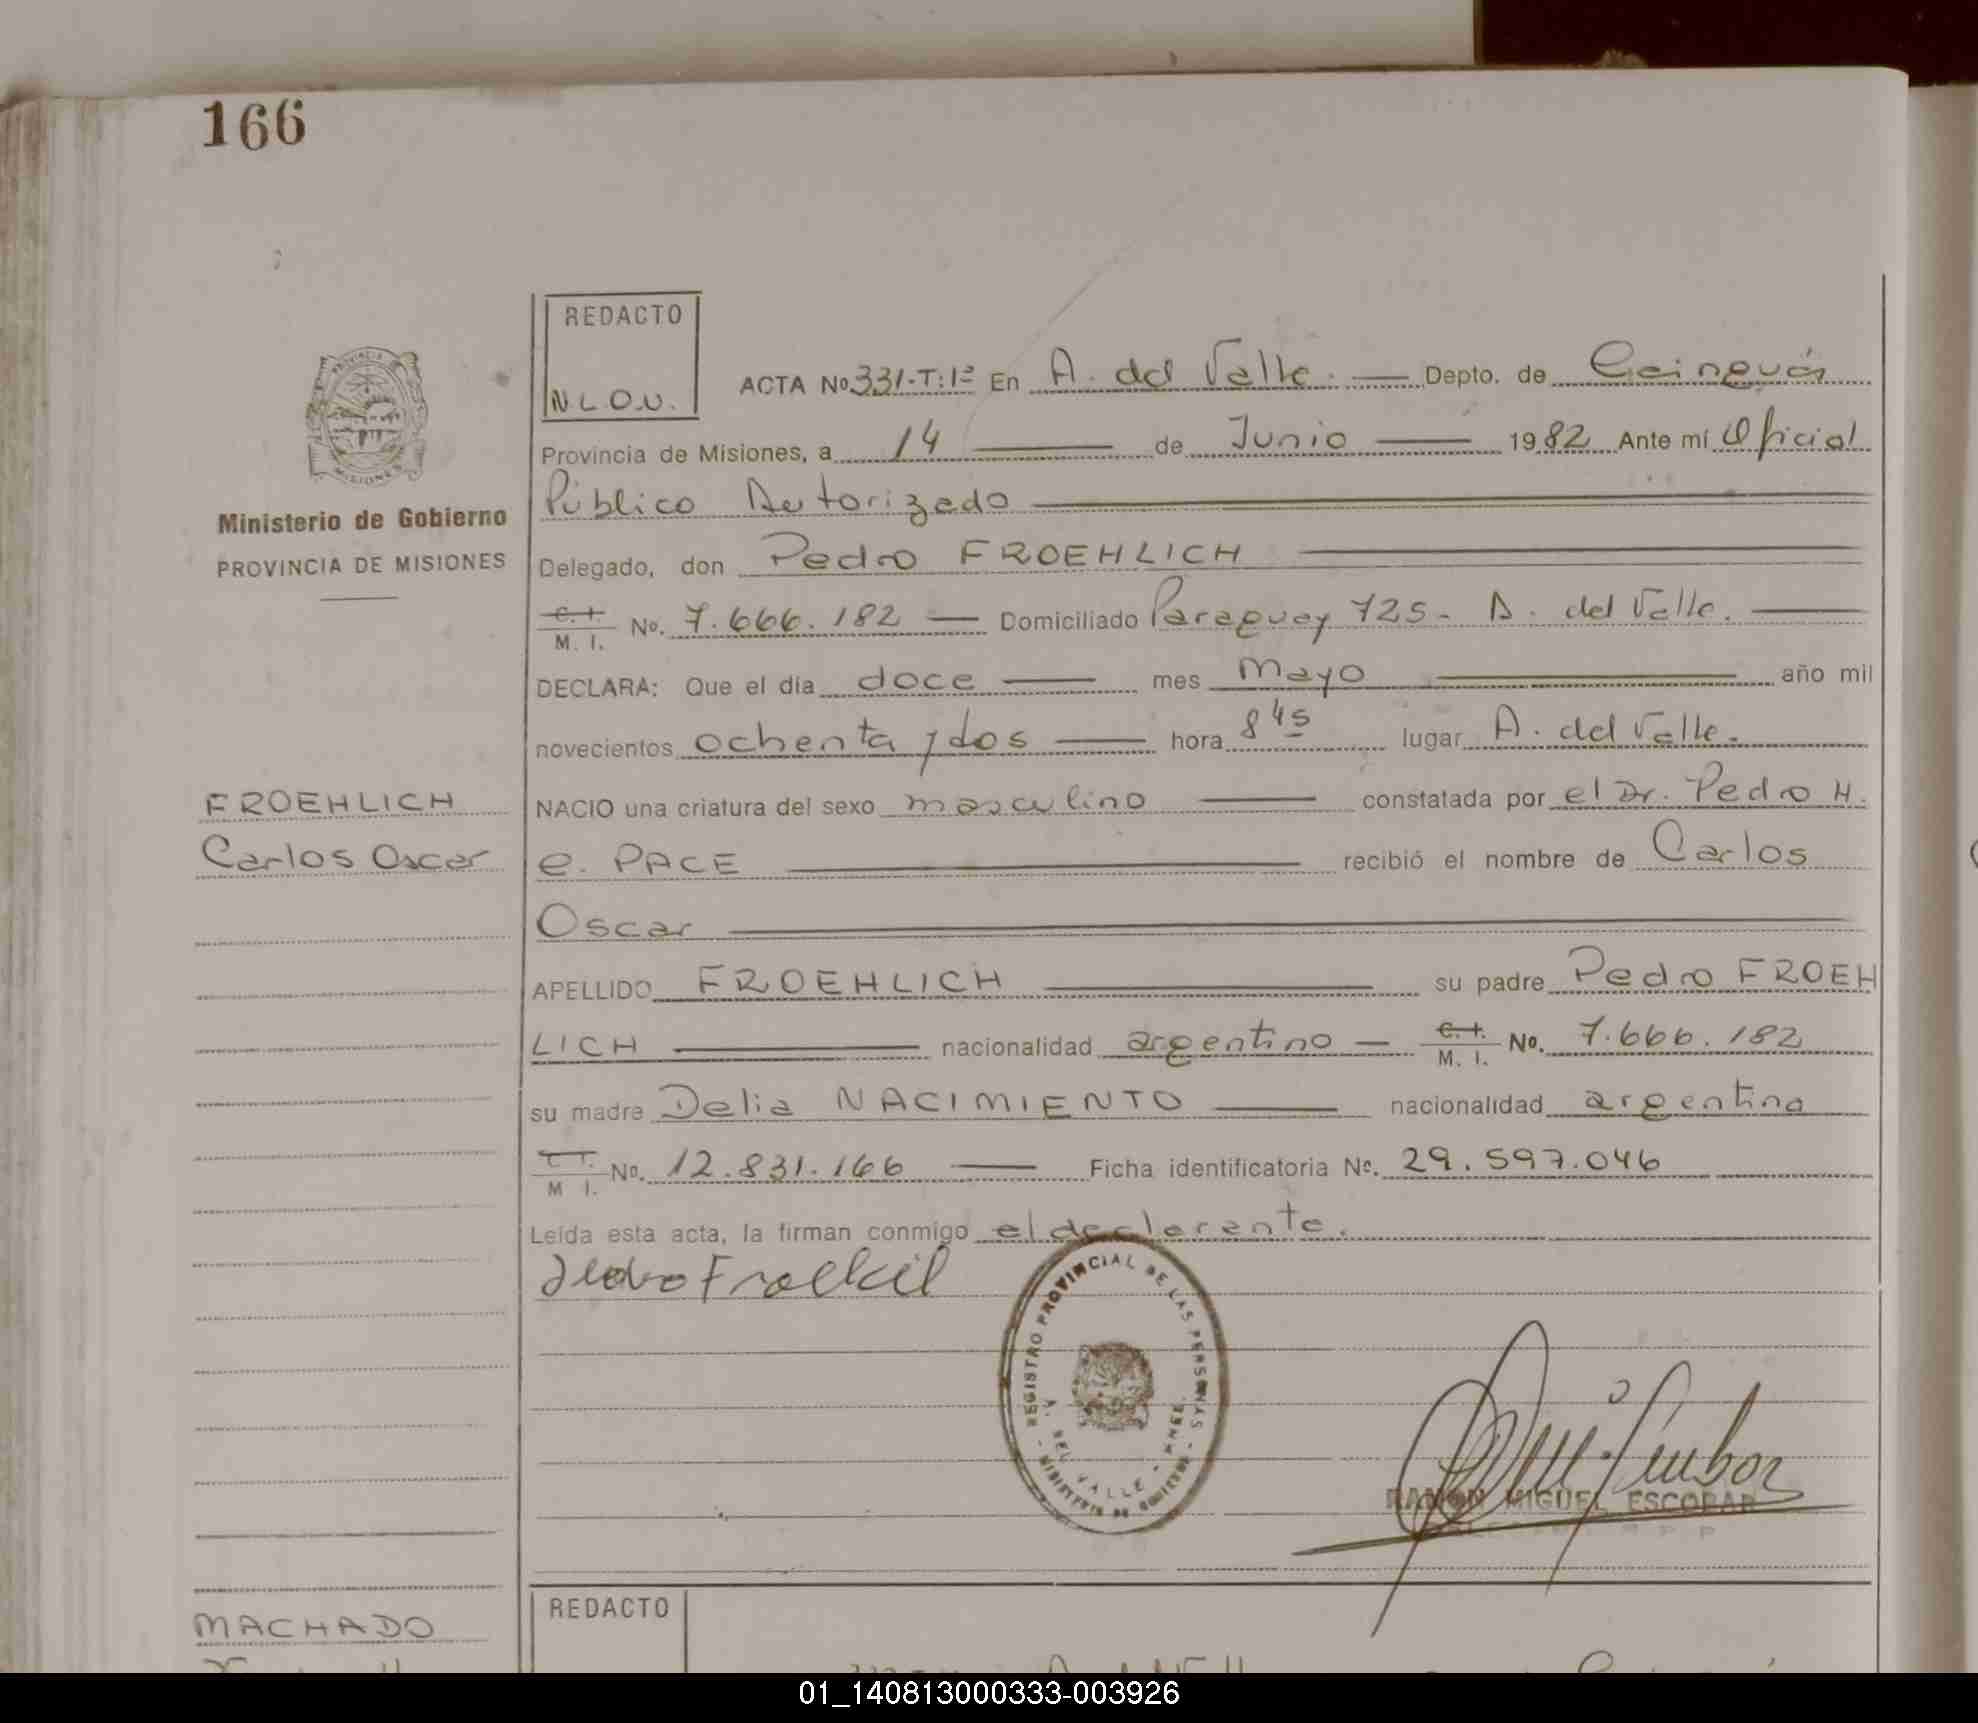 166
REDACTO
N.L.O.U.
ACTA No. 331-T:1º En A. del Valle. Depto. de Cainguás
Provincia de Misiones, a 14 de Junio 1982 Ante mí Oficial
Público Autorizado
Ministerio de Gobierno
PROVINCIA DE MISIONES
Delegado, don Pedro FROEHLICH
C. I. M. I. No. 7.666.182 Domiciliado Paraguay 725- A. del Valle.
DECLARA: Que el día doce mes mayo año mil
novecientos ochenta y dos hora 8 45 lugar A. del Valle.
FROEHLICH
Carlos Oscar
NACIO una criatura del sexo masculino constatada por el Dr. Pedro H.
e. PACE recibió el nombre de Carlos
Oscar
APELLIDO FROEHLICH su padre Pedro FROEH
LICH nacionalidad argentino C. I. M. I. No. 7.666.182
su madre Delia NACIMIENTO nacionalidad argentina
C. I. M. I. No. 12.831.166 Ficha identificatoria No. 29.597.046
Leída esta acta, la firman conmigo el declarante.
REGISTRO PROVINCIAL DE LAS PERSONAS
A. DEL VALLE - MNES.
- MINISTERIO DE GOBIERNO -
RAMON MIGUEL ESCOBAR
REDACTO
MACHADO
01_140813000333-003926